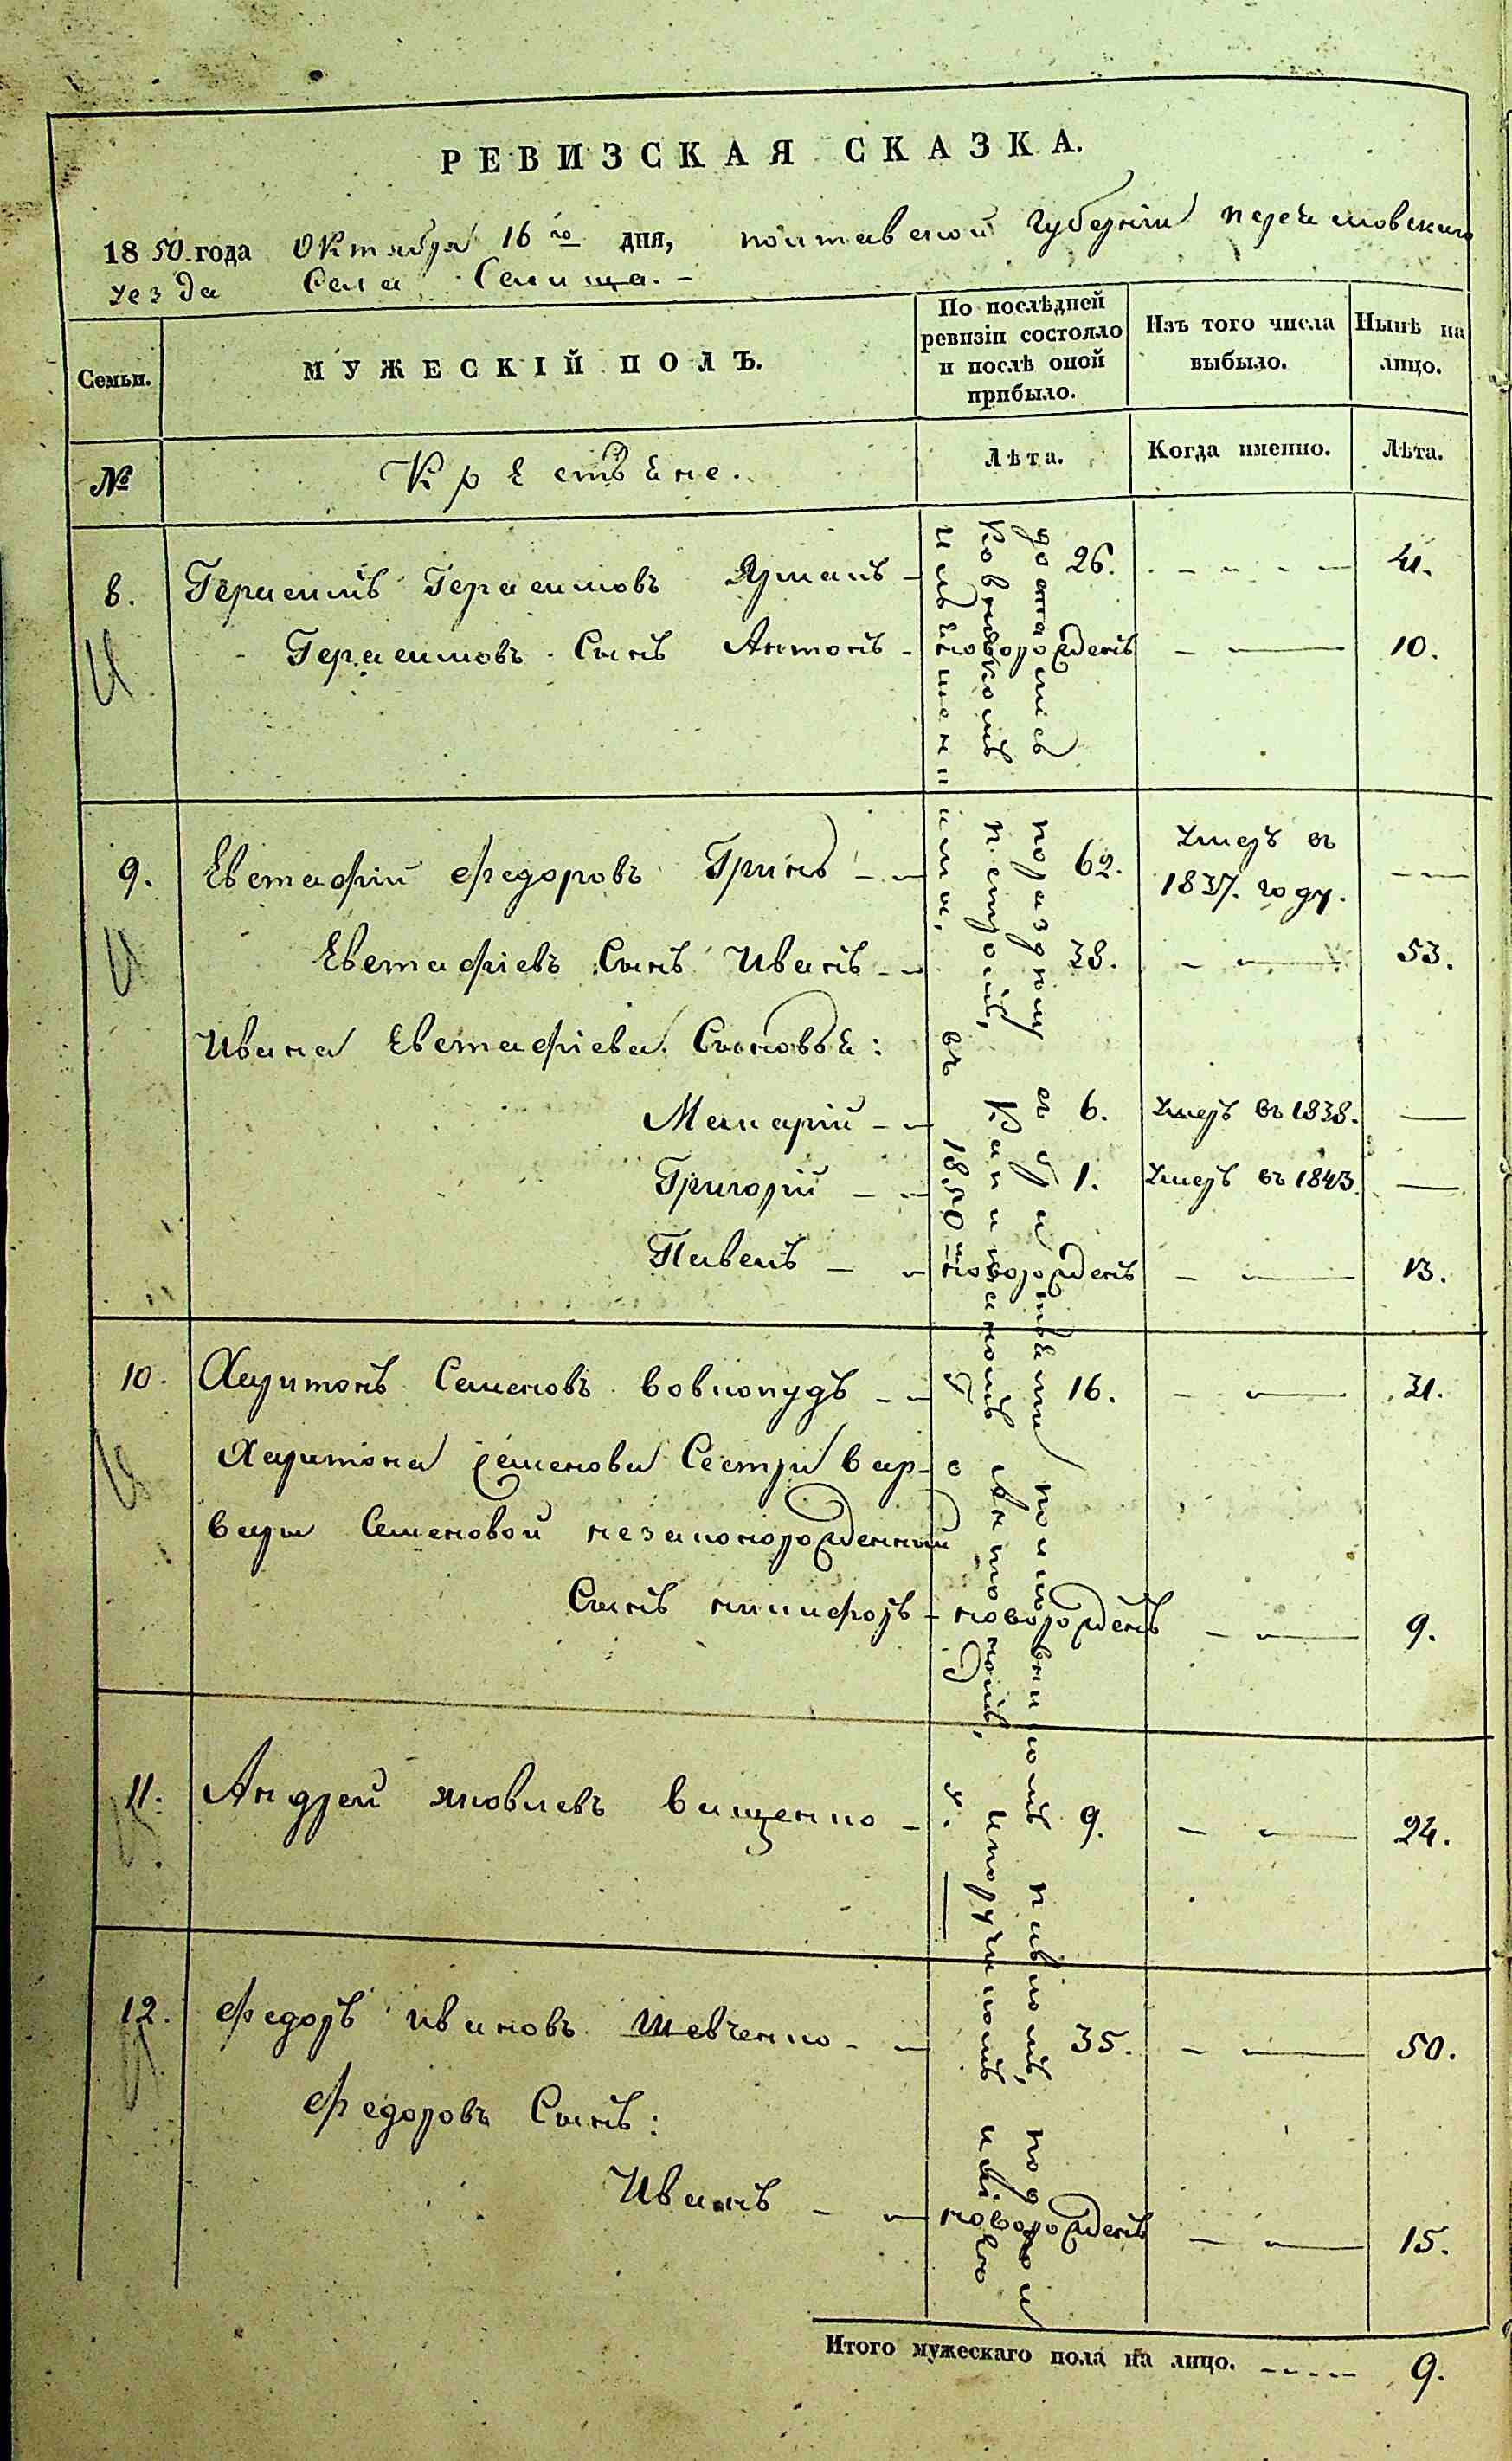 РЕВИЗСКАЯ СКАЗКА.
1850. года Октября 16 го дня, полтавской Губерніи переяславского
уезда Села Селища. -
Семьи.
МУЖЕСКІЙ ПОЛЪ.
По послѣдней ревизіи состояло и послѣ оной прибыло.
Изъ того числа выбыло.
Нынѣ на лицо.
№
Крестьяне.
Лѣта.
Когда именно.
Лѣта.
8. Герасимъ Герасимовъ 26. 41.
Герасимовъ Сынъ Антонъ - новорожденъ 10.
9. Евстафій федоровъ Гринь 62. умеръ въ 1837. году.
Евстафіевъ Сынъ Иванъ 38. 53.
Ивана Евстафіева Сыновья:
Макарій 6. умеръ въ 1838.
Григорій 1. умеръ въ 1843.
Павелъ новорожденъ 13.
10. Харитонъ Семеновъ 16. 31.
Харитона Семенова Сестры вар-
вары Семеновой незаконорожденный
Сынъ никифоръ - новорожденъ 9.
11. Андрей яковлевъ ващенко - 9. 24.
12. федоръ ивановъ шевченко 35. 50.
федоровъ Сынъ:
Иванъ новорожденъ 15.
достались по раздѣлу съ братьями полковникомъ павломъ,
петромъ, капитаномъ Антономъ, и порутчикомъ
имѣніи въ 1850 м году.
Итого мужескаго пола на лицо. 9.